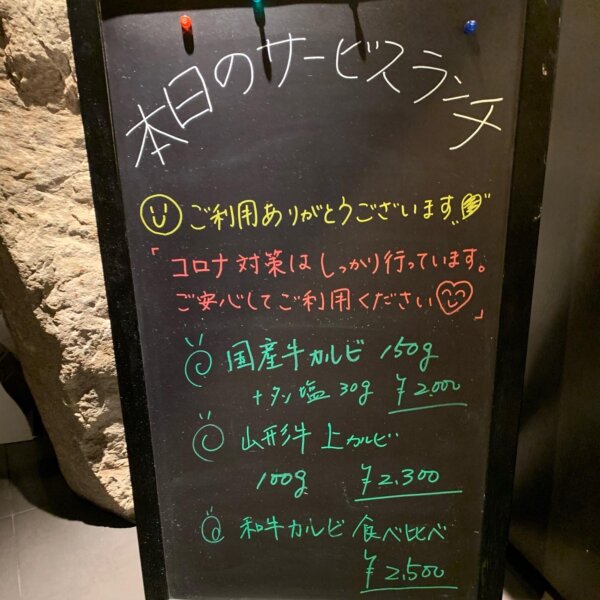 本日のサービスランチ
ご利用ありがとうございます
「コロナ対策はしっかり行っています。
ご安心してご利用ください」
国産牛カルビ 150g
+タン塩 30g ¥2.000
山形牛 上カルビ
100g ¥2.300
和牛カルビ 食べ比べ
¥2.500